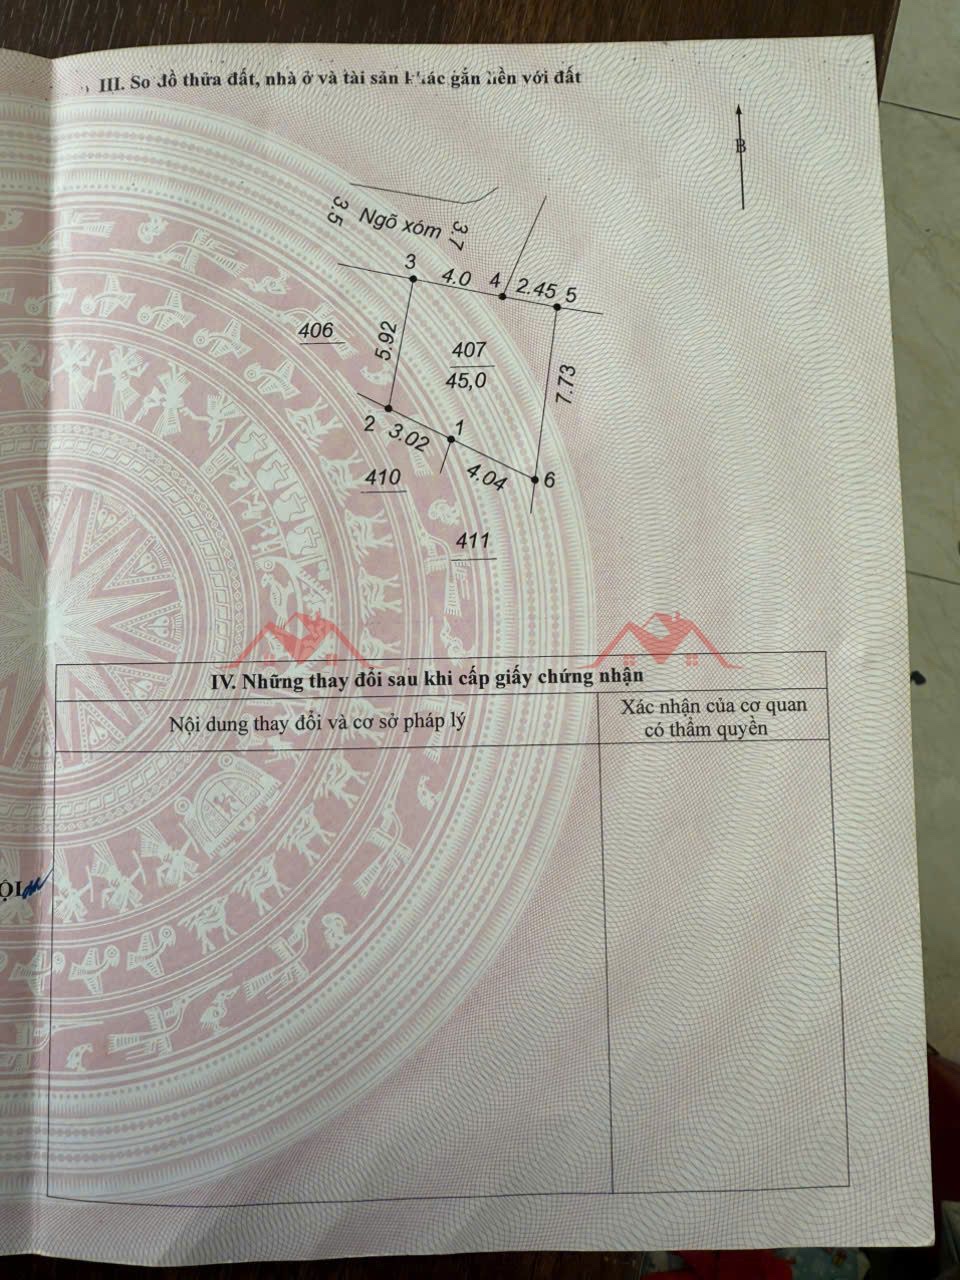 III. Sơ đồ thửa đất, nhà ở và tài sản khác gắn liền với đất
B
3.5
Ngõ xóm
3.7
3
4.0
4
2.45
5
406
5.92
407
45,0
7.73
2
3.02
1
4.04
6
410
411
IV. Những thay đổi sau khi cấp giấy chứng nhận
Nội dung thay đổi và cơ sở pháp lý
Xác nhận của cơ quan
có thẩm quyền
ỘI